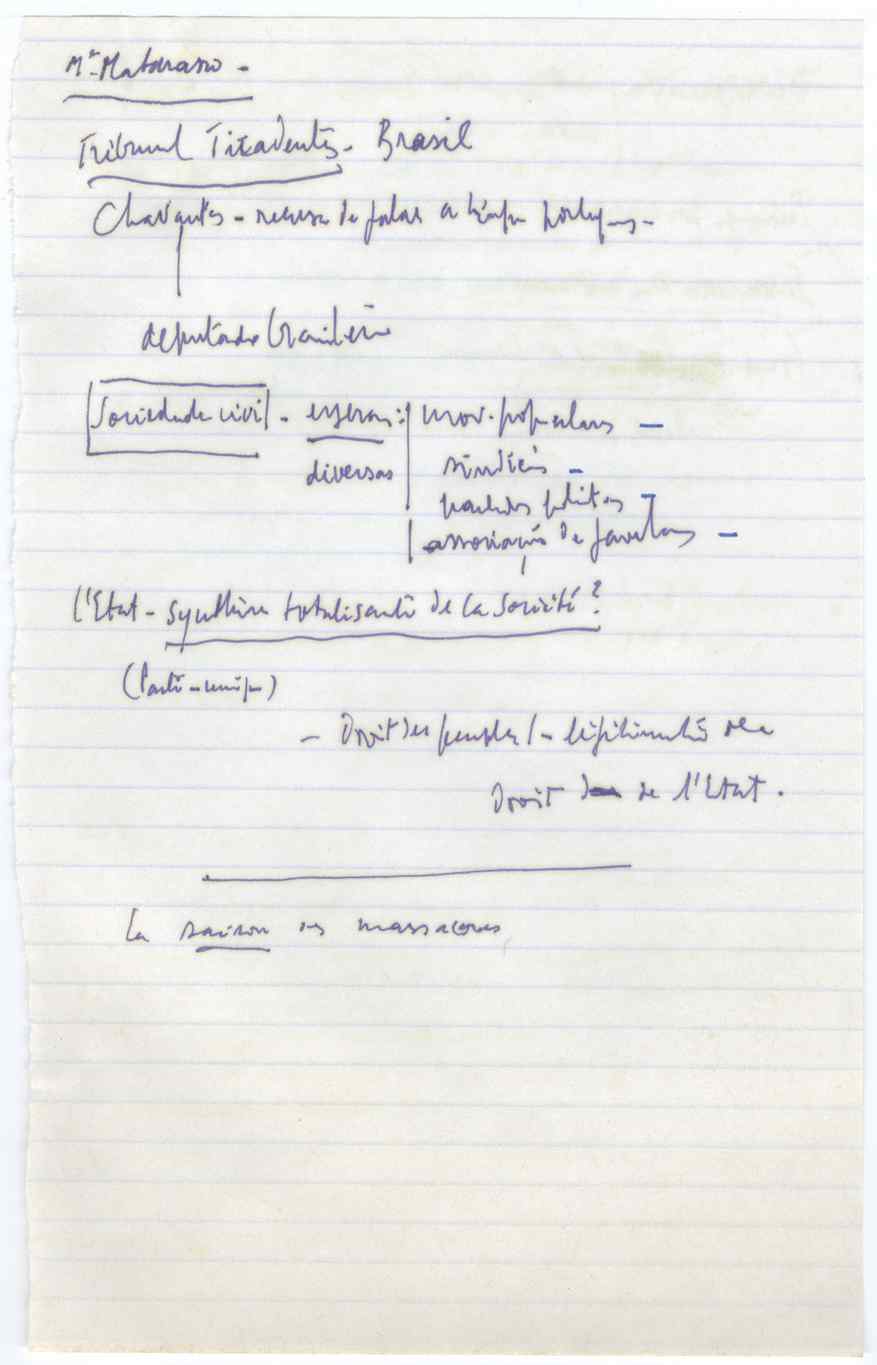 Mᵉ Matarasso -
Tribunal Tiradentes - Brasil
Chavantes - recusa de falar a língua portug
deputado brasileiro
Sociedade civil - esferas: mov. populares -
diversas sindicatos -
partidos politicos -
associações de favelas -
L'Etat - synthèse totalisante de la société?
(Parti-unique)
- Droit des peuples / - légitimité de
Droit de l'Etat.
La saison des massacres